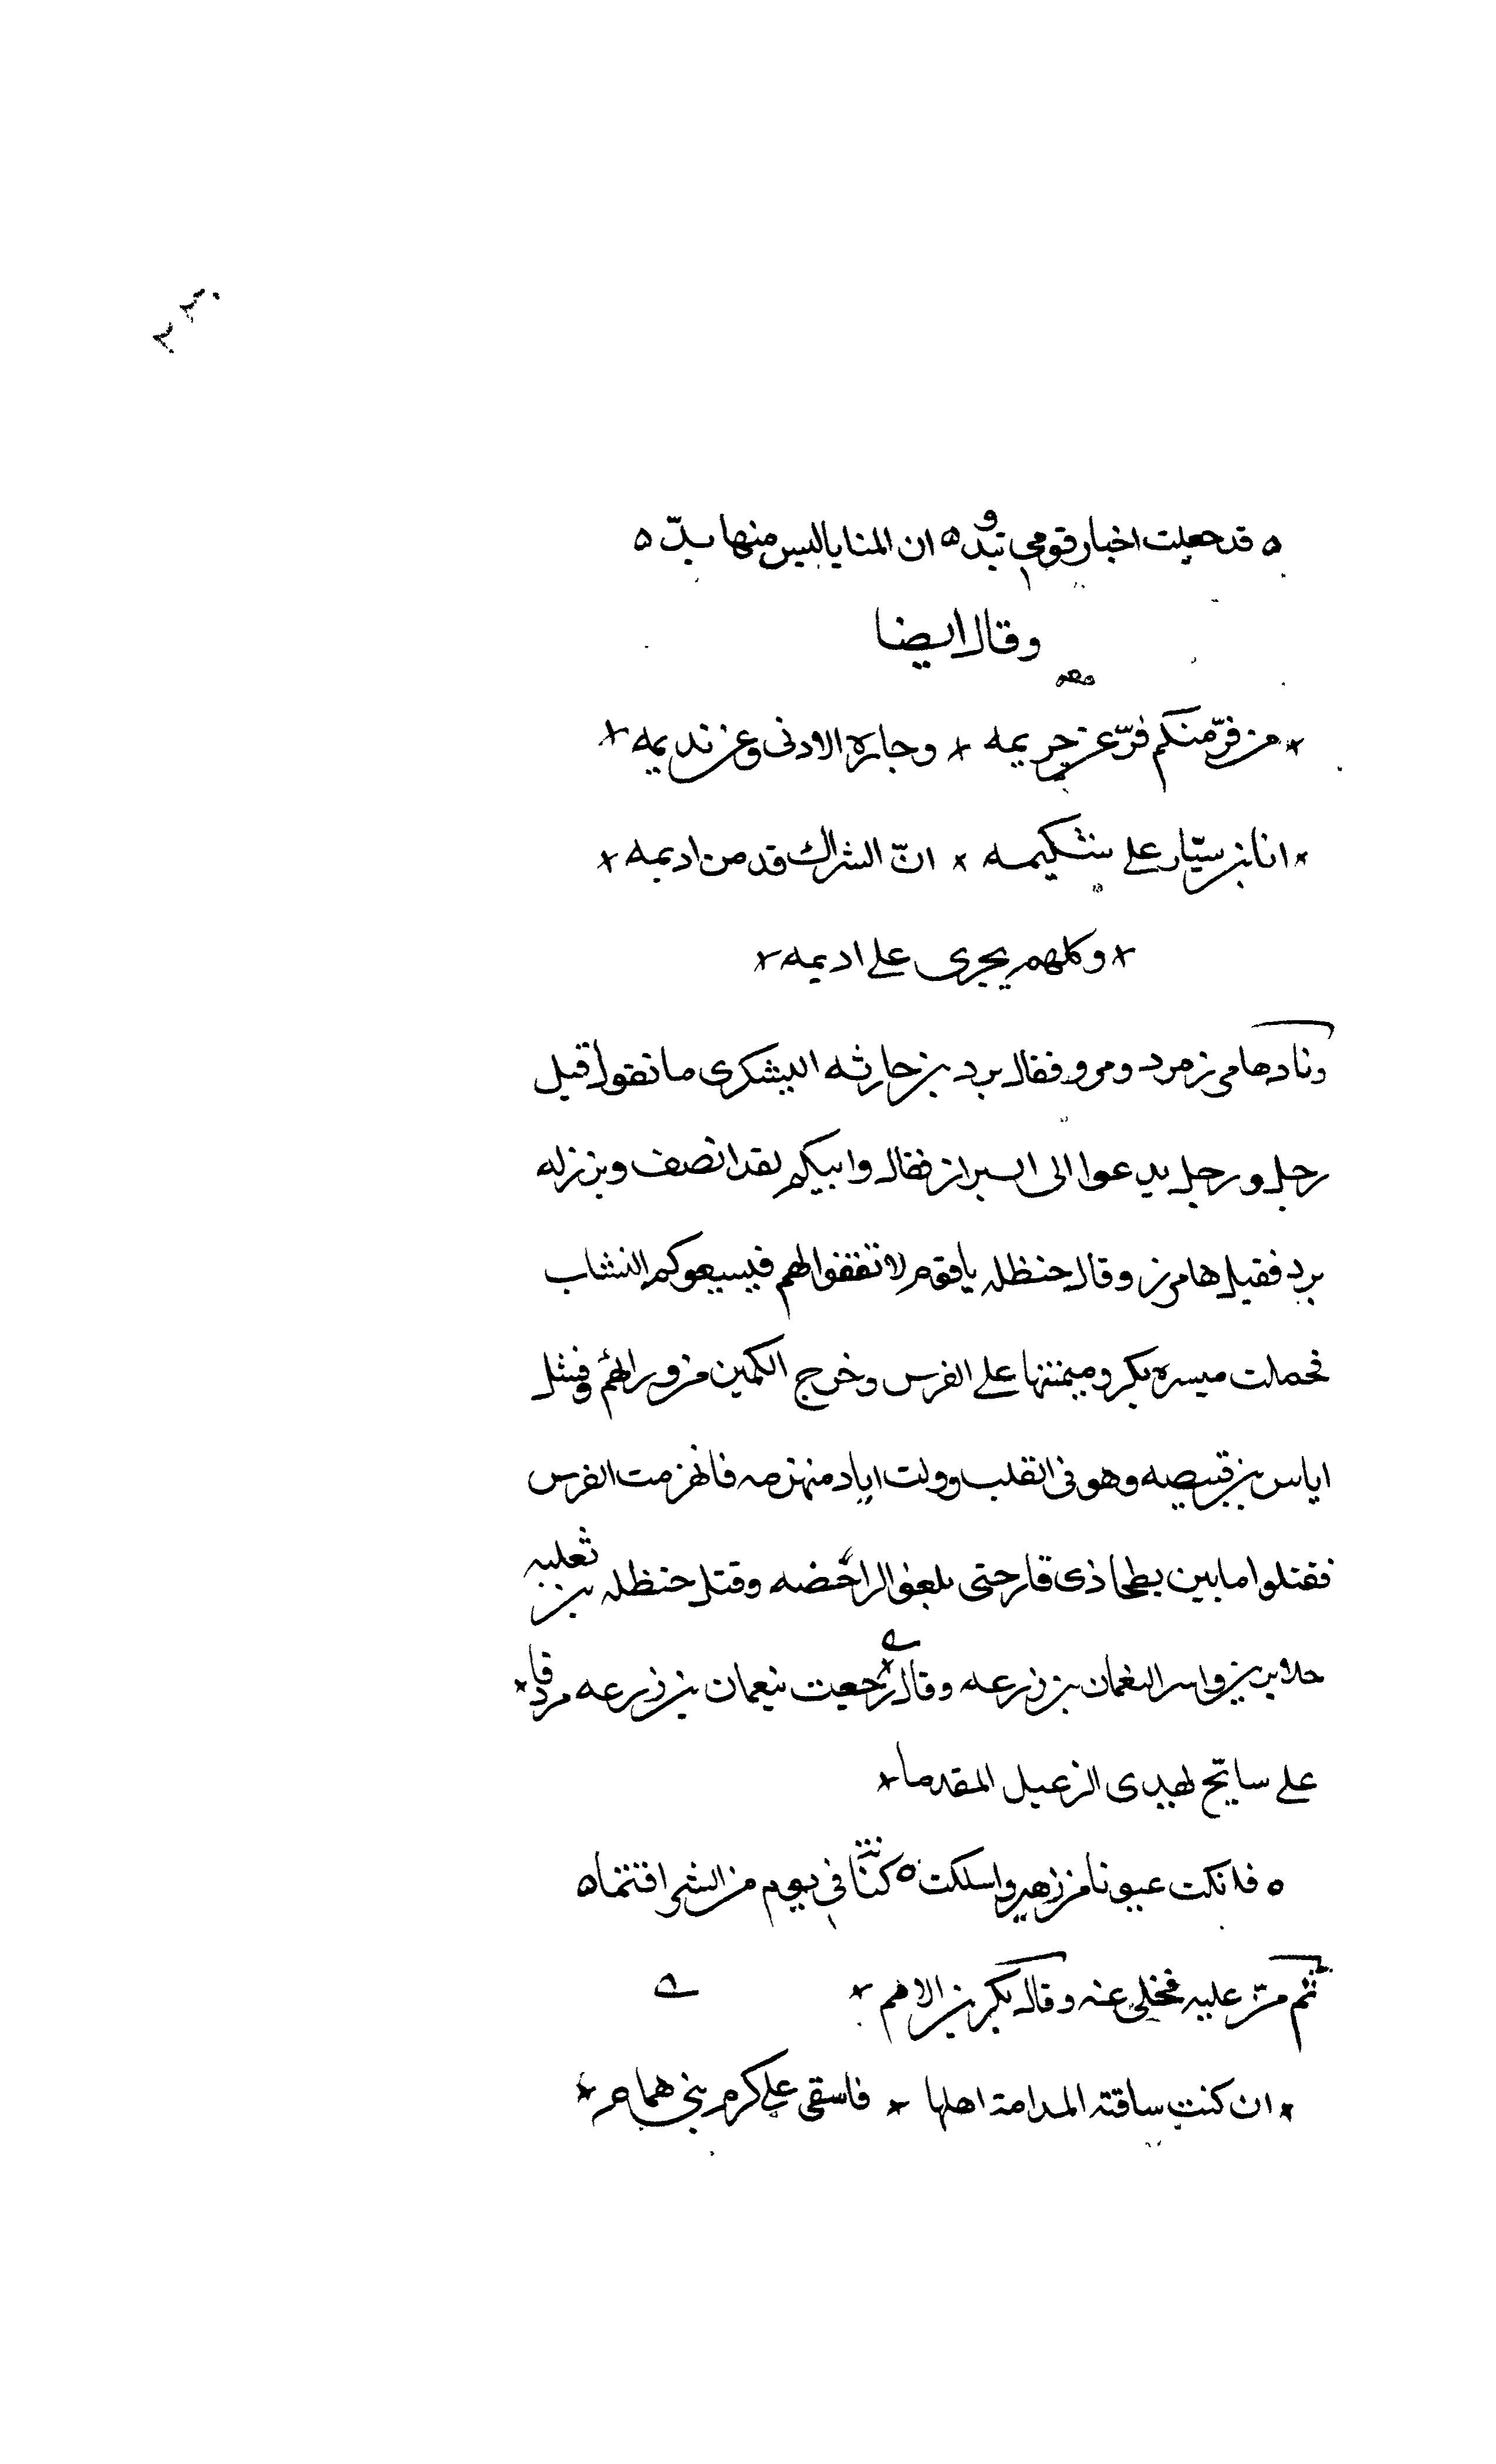 ه قد جعلت اخبار قومي تبدو ه ان المنايا ليس منها بدّ ه
وقال ايضا
* من فرّ منكم فرّ عن حريمه * وجاره الادنى وعن نديمه *
* انا بن سيّار على شكيمه * انّ الشراك قد من اديمه *
* وكلهم يجرى على اديمه *
ونادهامرز مرد ومرو فقال برد بن حارثه اليشكرى ما تقول قيل
رجل ورجل يدعوا الى البراز فقال وابيكم لقد انصف وبرز له
برد فقيل هامرز وقال حنظله يا قوم لا تقفوا لهم فيسيعوكم النشاب
فحملت ميسره بكر وميمنتها على الفرس وخرج الكمين من ورائهم وفشل
اياس بن قبيصه وهو فى القلب وولت اياد منهزمه فانهزمت الفرس
فقتلوا ما بين بطحا ذى قار حتى بلغوا الراخضه وقتل حنظله بن ثعلبه
واسر النعمان بن زرعه وقال رجعت بنعمان بن زرعه مردفا *
على سابح يهدى الرعيل المقدما *
ه فلا نكت عيونا من زهير واسلكت ه كتنا فى يوم من الشر اقتما ه
ثم مرّ عليه فخلى عنه وقال بكر بن الاصم *
* ان كنت ساقته المدامة اهلها * فاسقى على كرم بنى همام *